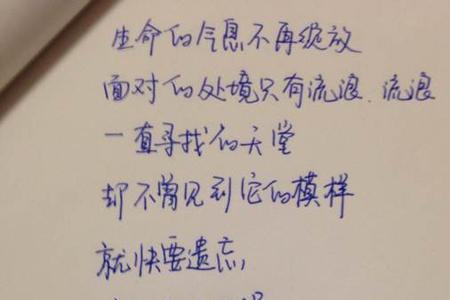 生命的气息不再绽放
面对的处境只有流浪、流浪
一直寻找的天堂
却不曾见到它的模样
就快要遗忘,